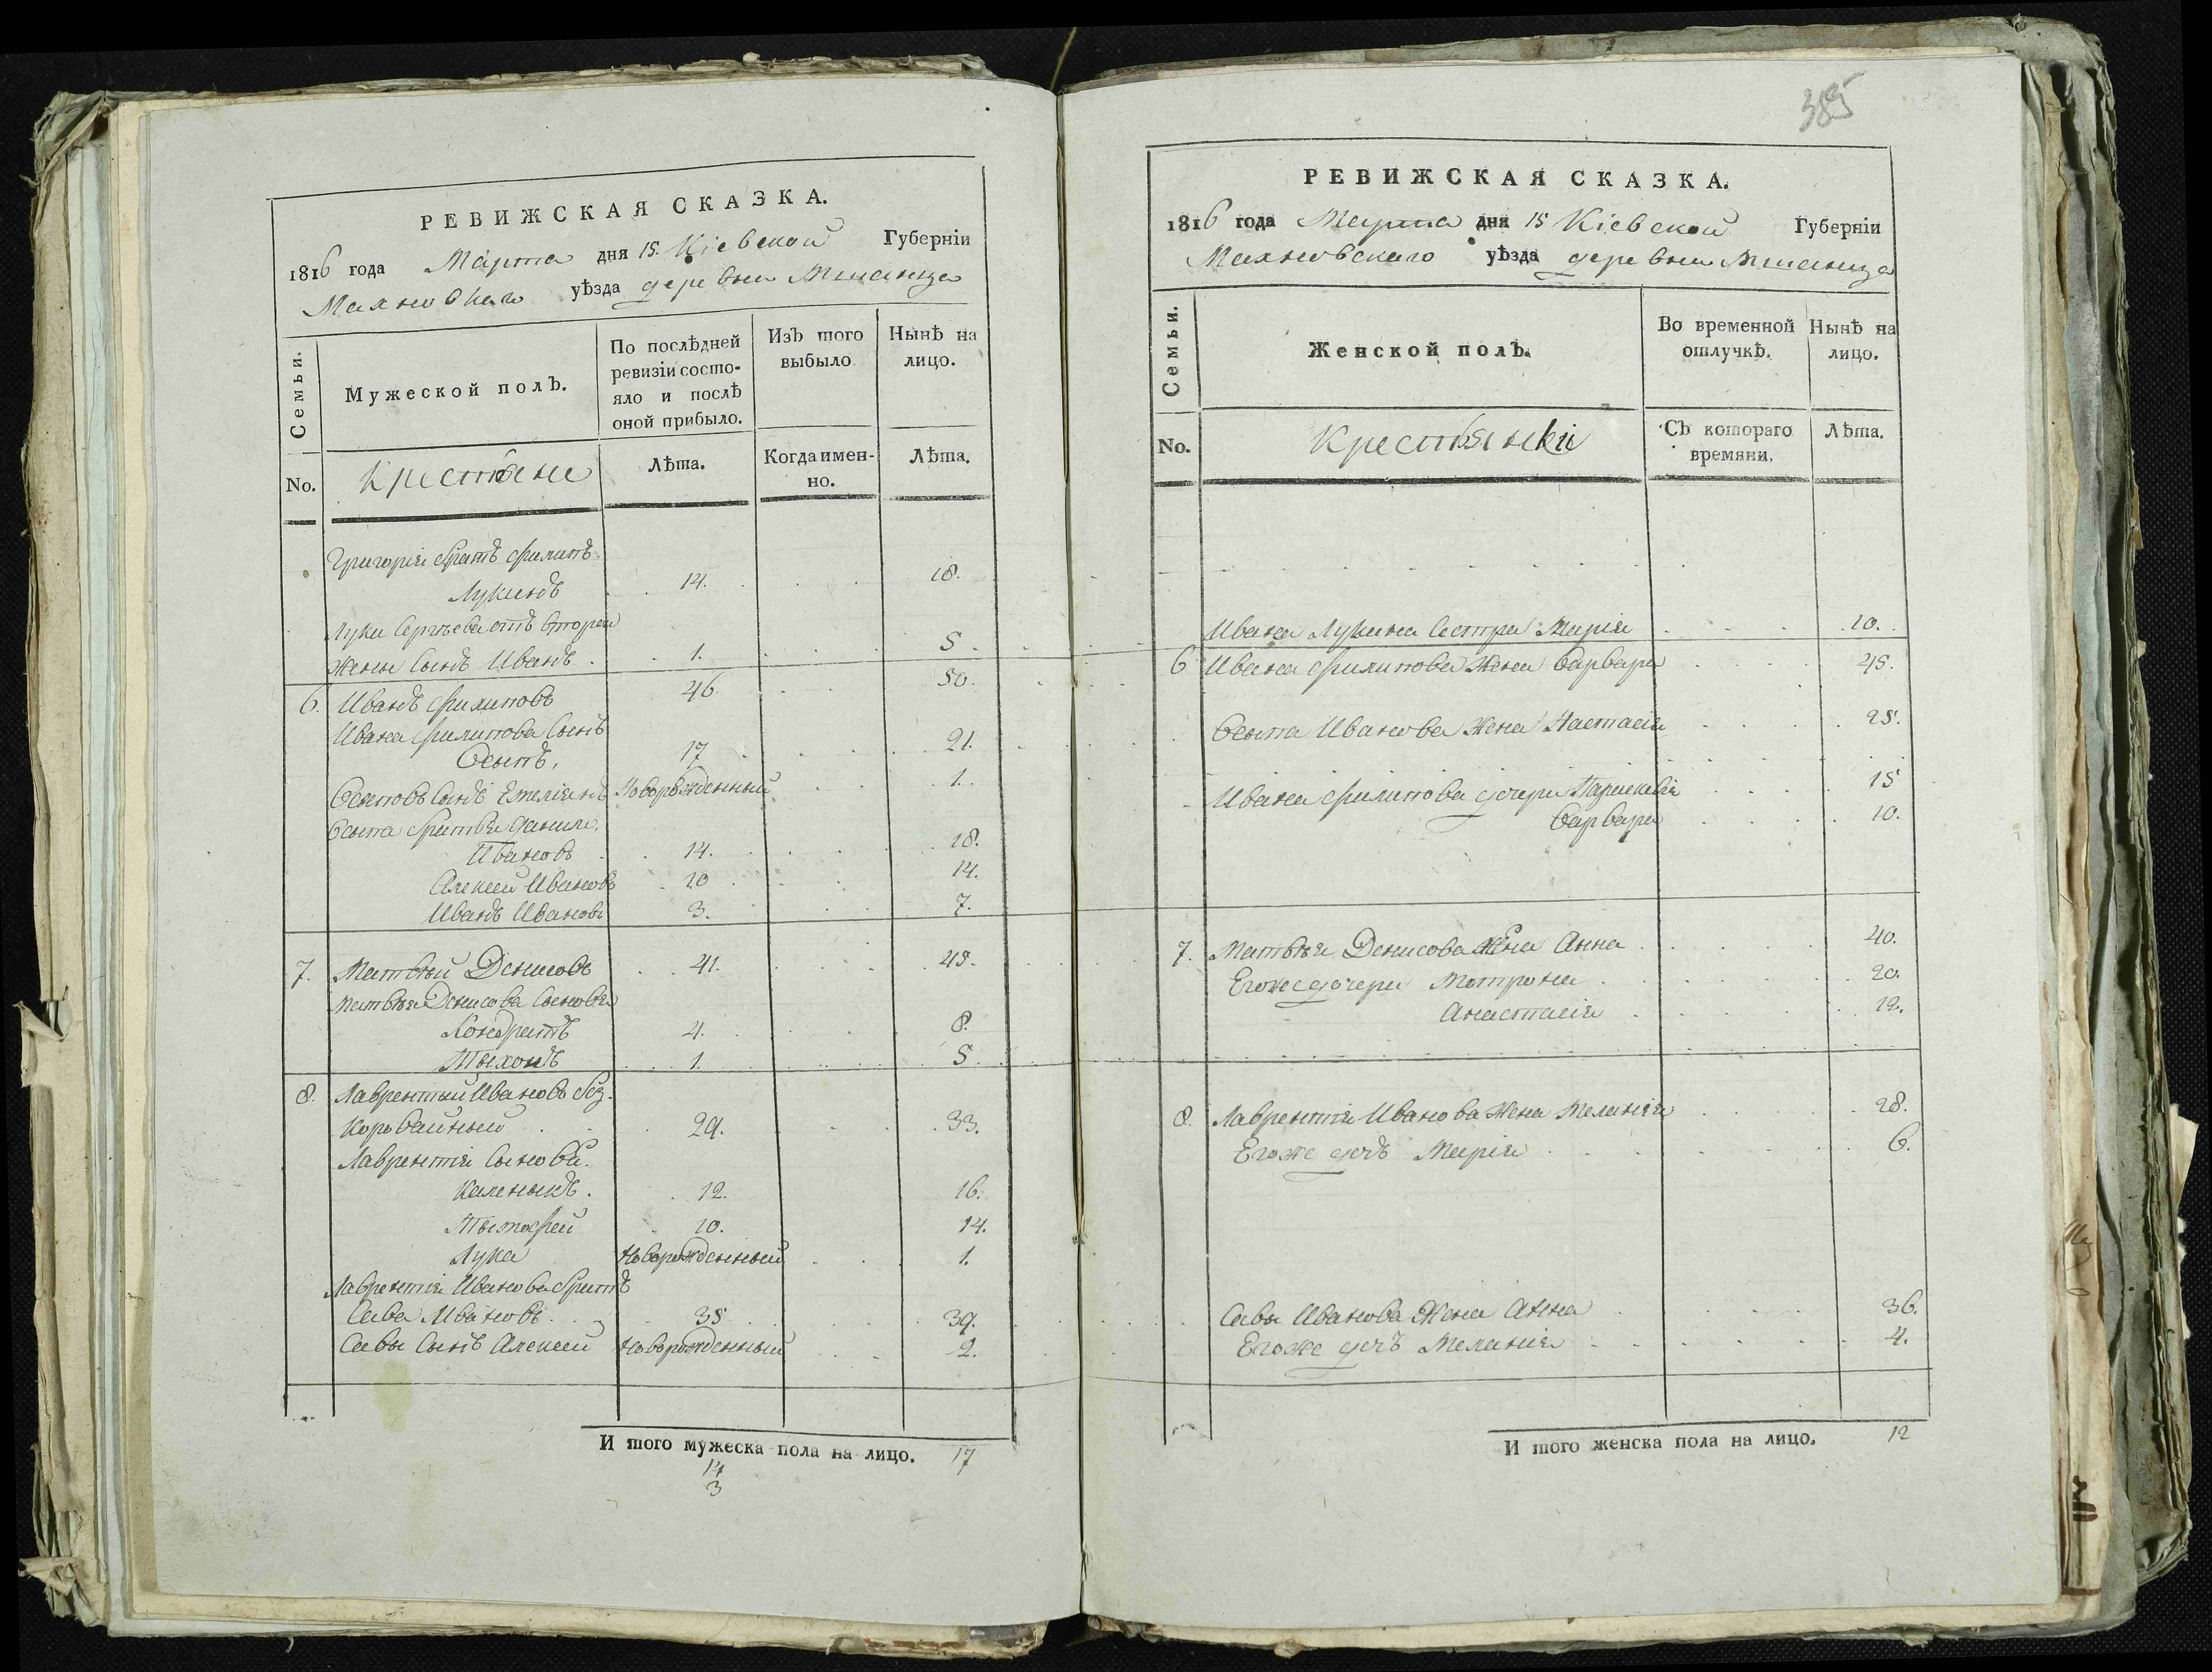 РЕВИЖСКАЯ СКАЗКА.
1816 года Марта дня 15. Кіевской Губерніи
Махновскаго уѣзда деревни Мшанца
Семьи.
Мужеской полъ.
По послѣдней ревизіи состо-
яло и послѣ
оной прибыло.
Изъ того
выбыло
Нынѣ на
лицо.
No.
Крестьяне
Лѣта.
Когда имен-
но.
Лѣта.
Григорія братъ Филипъ
Лукинъ 14. 18.
Луки Сергѣева отъ второй
жены сынъ Иванъ 1. 5.
6. Иванъ Филиповъ 46. 50.
Ивана Филипова сынъ
Осипъ, 17 21.
Осиповъ сынъ Емеліянъ Новорожденный 1.
Осипа братья Данило,
Ивановъ 14. 18.
Алексей Ивановъ 10 14.
Иванъ Ивановъ 3. 7.
7. Матвѣй Денисовъ 41. 45.
Матвѣя Денисова сыновья
Кондратъ 4. 8.
Тыхонъ 1. 5.
8. Лаврентый Ивановъ без-
коровайный 29. 33.
Лаврентія сыновья.
Каленыкъ. 12. 16.
Тымофей 10. 14.
Лука Новорожденный 1.
Лаврентія Иванова братъ
Сава Ивановъ. 35 39.
Савы сынъ Алексей Новорожденный 2.
И того мужеска пола на лицо. 17
14
3
385
РЕВИЖСКАЯ СКАЗКА.
1816 года Марта дня 15 Кіевской Губерніи
Махновскаго уѣзда деревни Мшанца
Семьи.
Женской полъ.
Во временной
отлучкѣ.
Нынѣ на
лицо.
No.
Крестьянки
Съ котораго
времяни,
Лѣта.
Ивана Лукина сестра Марія 10.
6 Ивана Филипова жена Варвара 45.
Осипа Иванова жена Настасія 25.
Ивана Филипова дочери Параскевія 15
Варвара 10.
7. Матвѣя Денисова жена Анна 40.
Егоже дочери Мотрона 20.
Анастасія 12.
8. Лаврентія Иванова жена Меланія 28.
Егоже дочъ Марія 6.
Савы Иванова жена Анна 36.
Егоже дочъ Меланія 4.
И того женска пола на лицо. 12